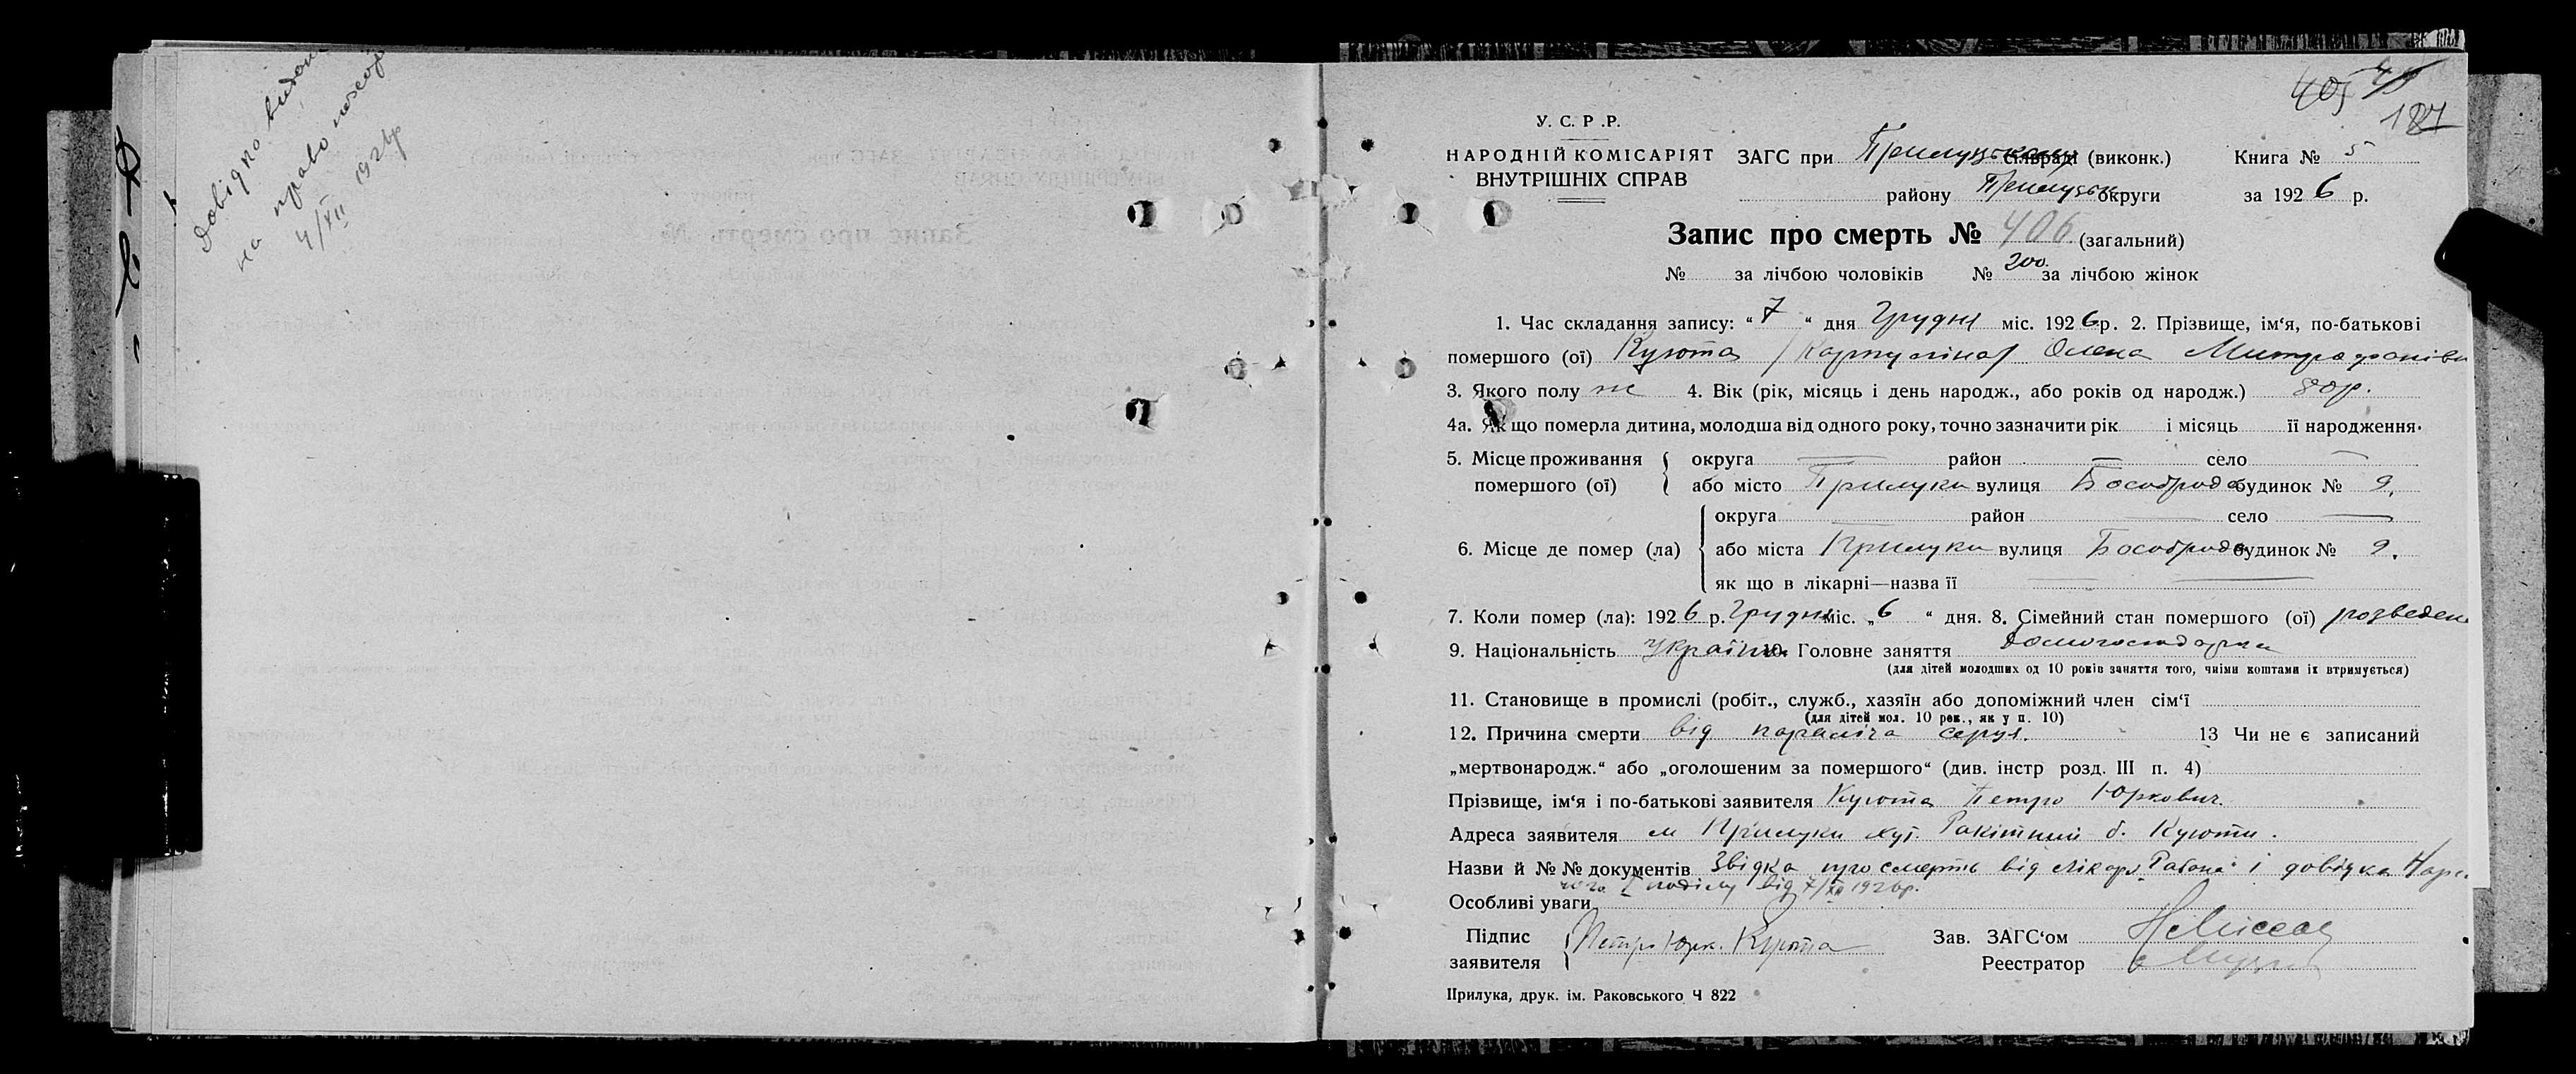 Довідка видана
на право похор
4/XII 1926р
405
187
У. С. Р .Р.
НАРОДНІЙ КОМІСАРІЯТ ЗАГС при Прилуцькому сільраді (виконк.) Книга № 5
ВНУТРІШНІХ СПРАВ району Прилуцьк округи за 1926 р.
Запис про смерть № 406 (загальний)
№ за лічбою чоловіків № 200 за лічбою жінок
1. Час складання запису: “ 7 “ дня Грудня міс. 1926 р. 2. Прізвище, ім‘я, по-батькові
помершого (ої) Кузюта / Олена Митрофанівн
3. Якого полу ж 4. Вік (рік, місяць і день народж., або років од народж.) 80р.
4а. Як що померла дитина, молодша від одного року, точно зазначити рік і місяць її народження.
5. Місце проживання округа — район — село —
помершого (ої) або місто Прилуки вулиця Бособрода будинок № 9.
округа — район — село —
6. Місце де помер (ла) або міста Прилуки вулиця Бособрода будинок № 9.
як що в лікарні—назва її — —
7. Коли помер (ла): 1926 р. Грудня міс. „ 6 “ дня. 8. Сімейний стан помершого (ої) розведен
9. Національність Україн 10. Головне заняття домогосподарка
(для дітей молодших од 10 років заняття того, чиїми коштами їх втримується)
11. Становище в промислі (робіт., служб., хазяїн або допоміжний член сім‘ї
(для дітей мол. 10 рок., як у п. 10)
12. Причина смерти від параліча серця. 13 Чи не є записаний
„мертвонародж.“ або „оголошеним за помершого“ (див. інстр розд. III п. 4)
Прізвище, ім‘я і по-батькові заявителя Кузюта Петро Юркович.
Адреса заявителя м Прилуки хут. Ракітний б. Кузюти.
Назви й № № документів Звідка про смерть від лікаря і довідка
від 7/XII 1926р.
Особливі уваги
Підпис Петро Юрк. Кузюта Зав. ЗАГС‘ом
заявителя Реестратор
Прилука, друк. ім. Раковського Ч 822